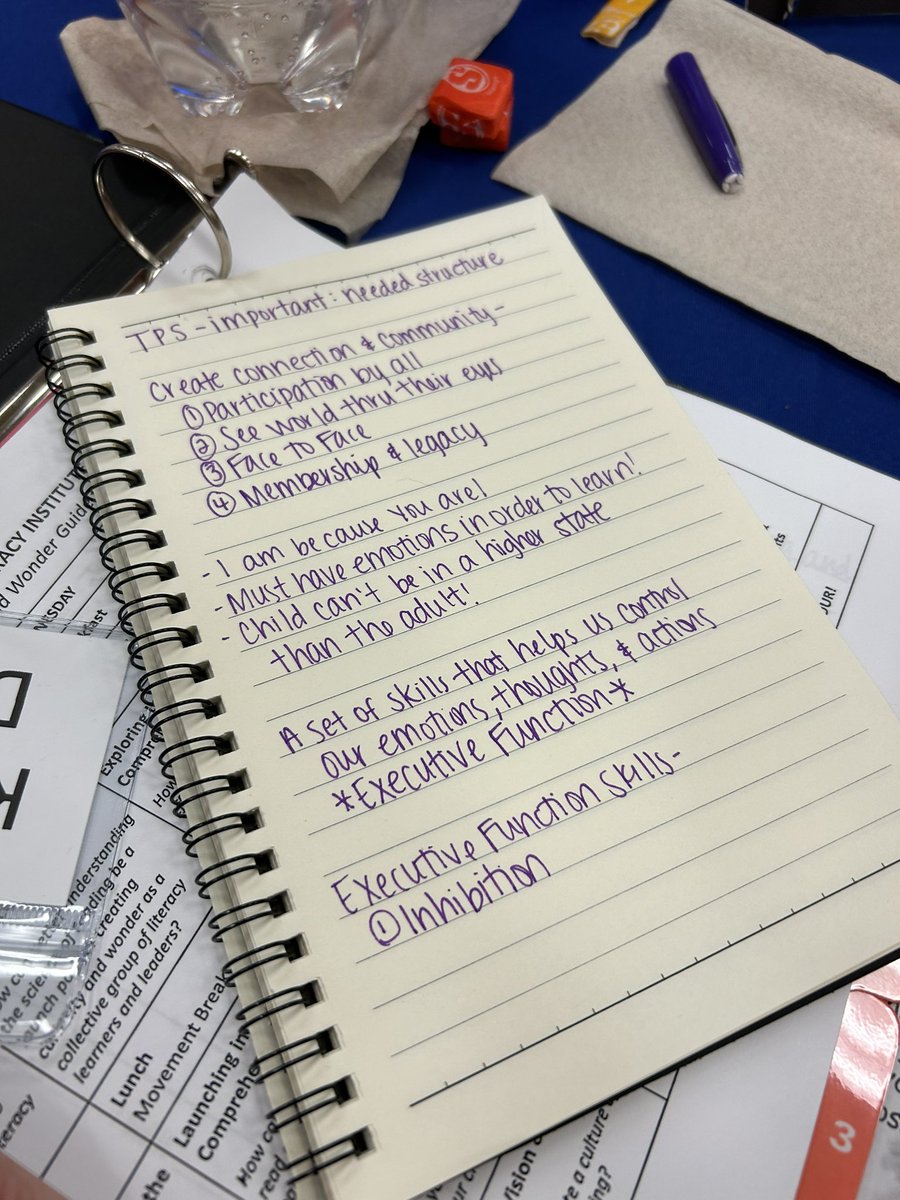 TPS - important: needed structure
Create connection & community -
① Participation by all
② See world thru their eyes
③ Face to Face
④ Membership & legacy
- I am because you are!
- Must have emotions in order to learn!
- Child can't be in a higher state
than the adult!
A set of skills that helps us control
our emotions, thoughts, & actions
*Executive Function*
Executive Function Skills-
① Inhibition
ACY INSTITU
d Wonder Guid
Exploring
Compre
How
understanding
ding be a
creating
and wonder as a
collective group of literacy
learners and leaders?
Lunch
Movement Break
Launching in
Comprehe
How co
read
the
eracy
vision
e a culture
ing?
OUR!
D
K
3
S